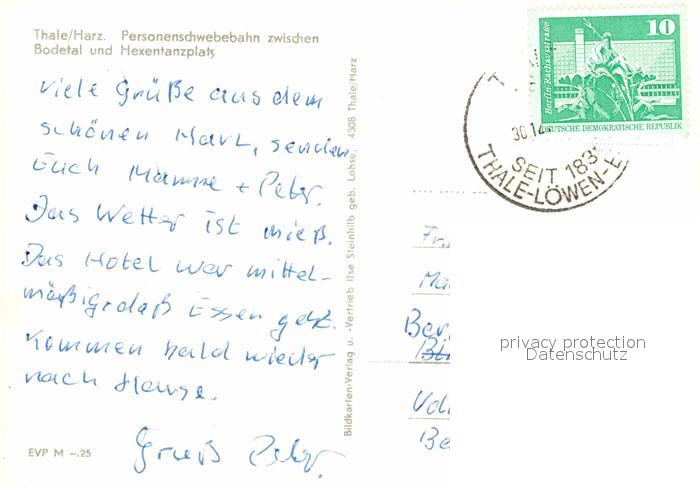 Thale/Harz. Personenschwebebahn zwischen
Bodetal und Hexentanzplatz
viele Grüße aus dem
schönen Harz, senden
Euch Mamme + Peter.
Das Wetter ist mieß.
Das Hotel war mittel-
mäßig, daß Essen geht.
Kommen bald wieder
nach Hause.
Gruß Peter.
EVP M –.25
Bildkarten-Verlag u. -Vertrieb Ilse Steinhilb geb. Lohse, 4308 Thale/Harz
10
Berlin, Rathausstraße
DEUTSCHE DEMOKRATISCHE REPUBLIK
30.1
SEIT 183
THALE-LÖWEN-E
Fr.
Ma
Ber
Vol
Be
privacy protection
Datenschutz